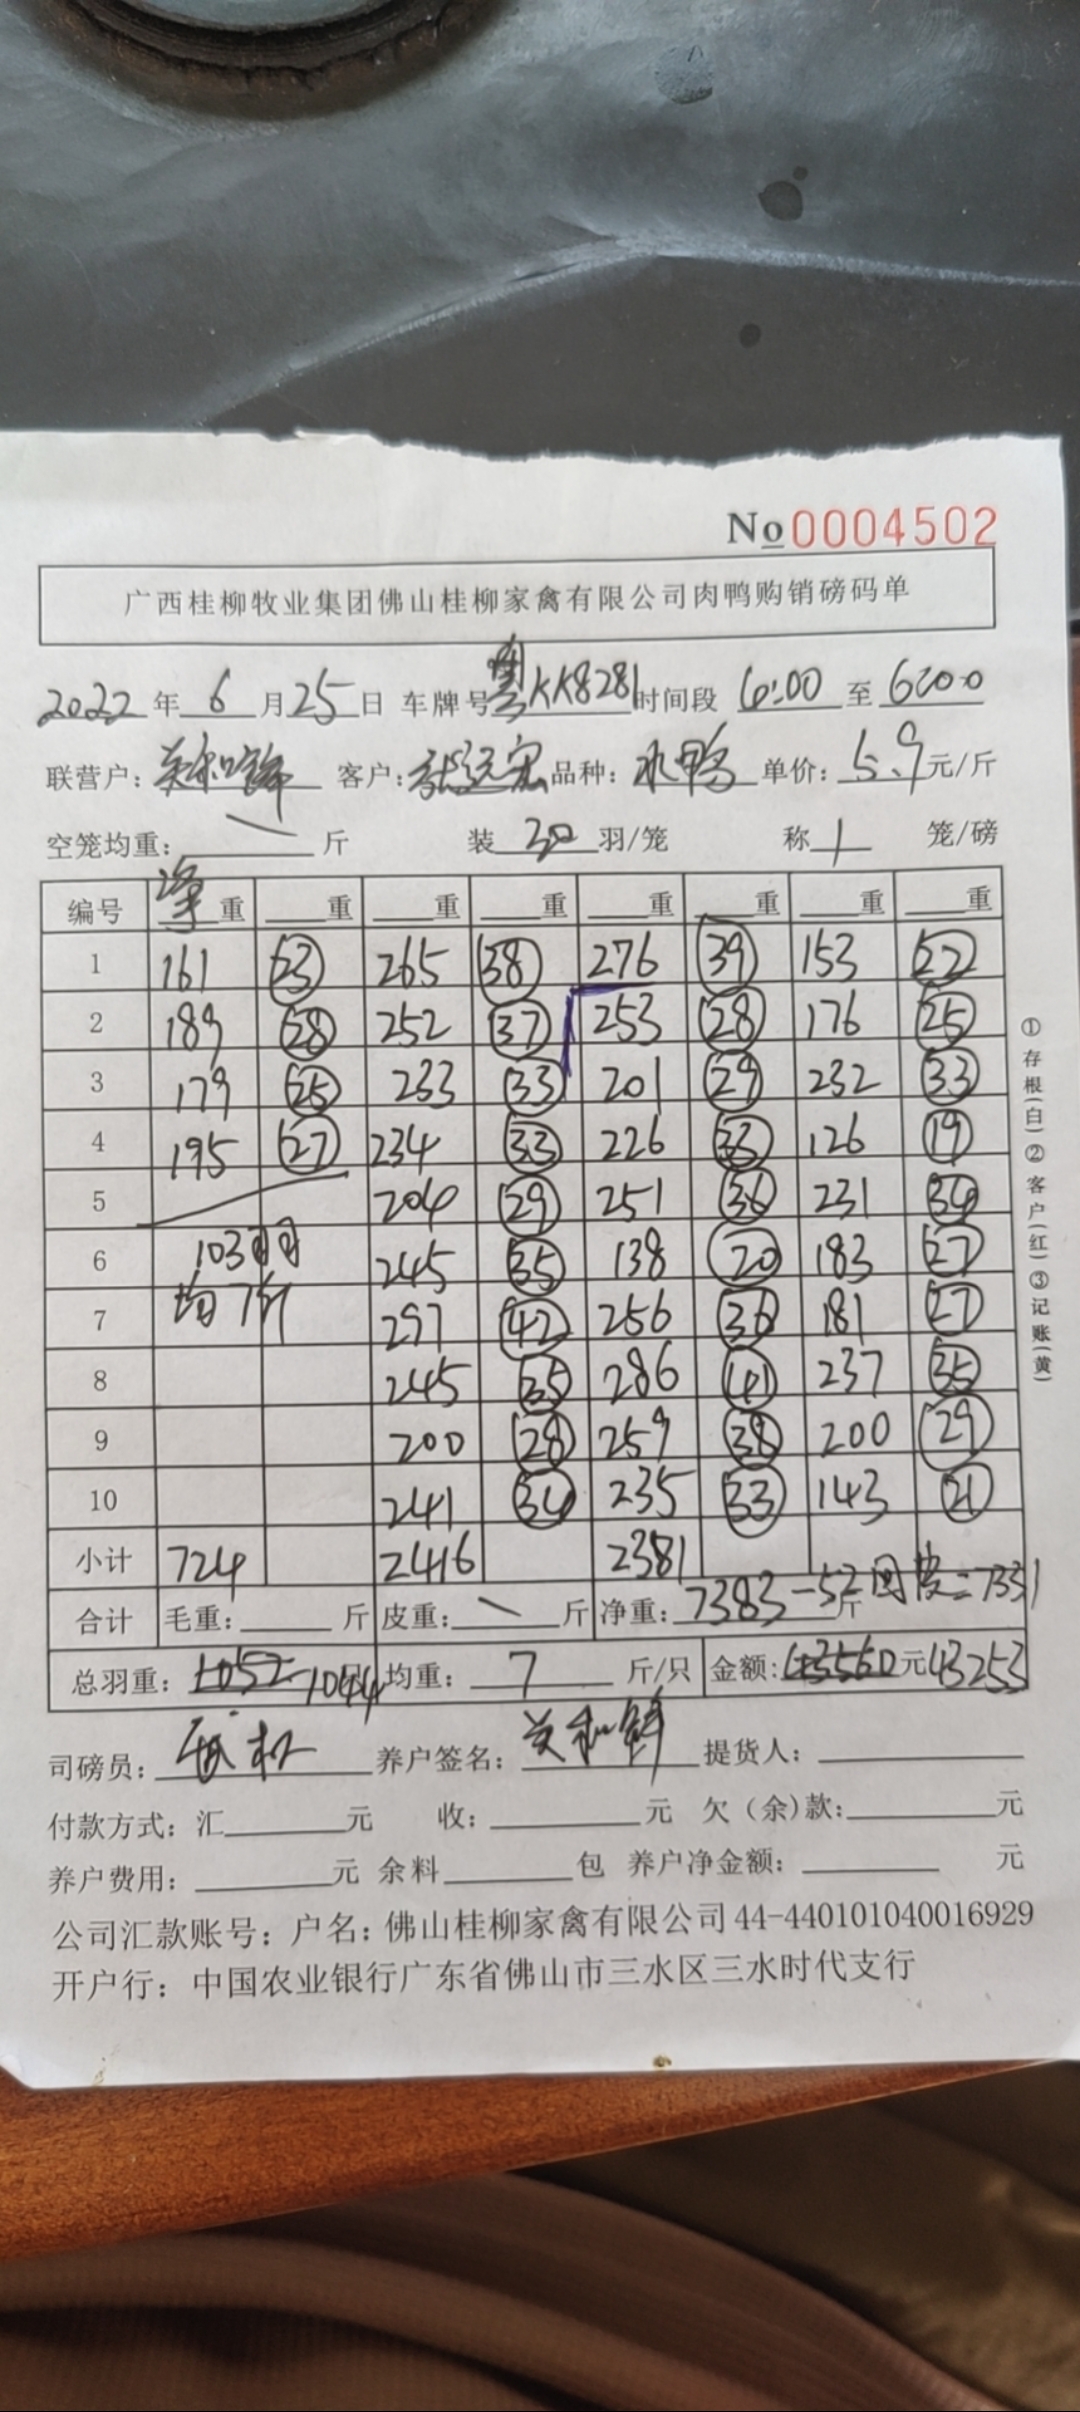 No 0004502
广西桂柳牧业集团佛山桂柳家禽有限公司肉鸭购销磅码单
2022 年 6 月 25 日 车牌号 粤KK8281 时间段 6:00 至 6:00
联营户: 客户: 张远宏 品种: 水鸭 单价: 5.9 元/斤
空笼均重: 斤 装 30 羽/笼 称 1 笼/磅
编号 净重 重 重 重 重 重 重 重
1 161 23 265 38 276 39 153 22
2 189 28 252 37 253 28 176 25
3 179 25 233 33 201 29 232 33
4 195 27 234 33 226 33 126 19
5 204 29 251 36 231 34
6 103羽 245 35 138 20 183 27
7 均7斤 297 42 256 36 181 27
8 245 35 286 41 237 35
9 200 28 259 38 200 29
10 241 34 235 33 143 21
小计 724 2416 2381
合计 毛重: 斤 皮重: 斤 净重: 7383 斤 -52 =7331
总羽重: 1052 1044 均重: 7 斤/只 金额: 43560 元 43253
司磅员: 养户签名: 关和锋 提货人:
付款方式: 汇 元 收: 元 欠(余)款: 元
养户费用: 元 余料 包 养户净金额: 元
公司汇款账号: 户名: 佛山桂柳家禽有限公司 44-440101040016929
开户行: 中国农业银行广东省佛山市三水区三水时代支行
①存根(白)②客户(红)③记账(黄)